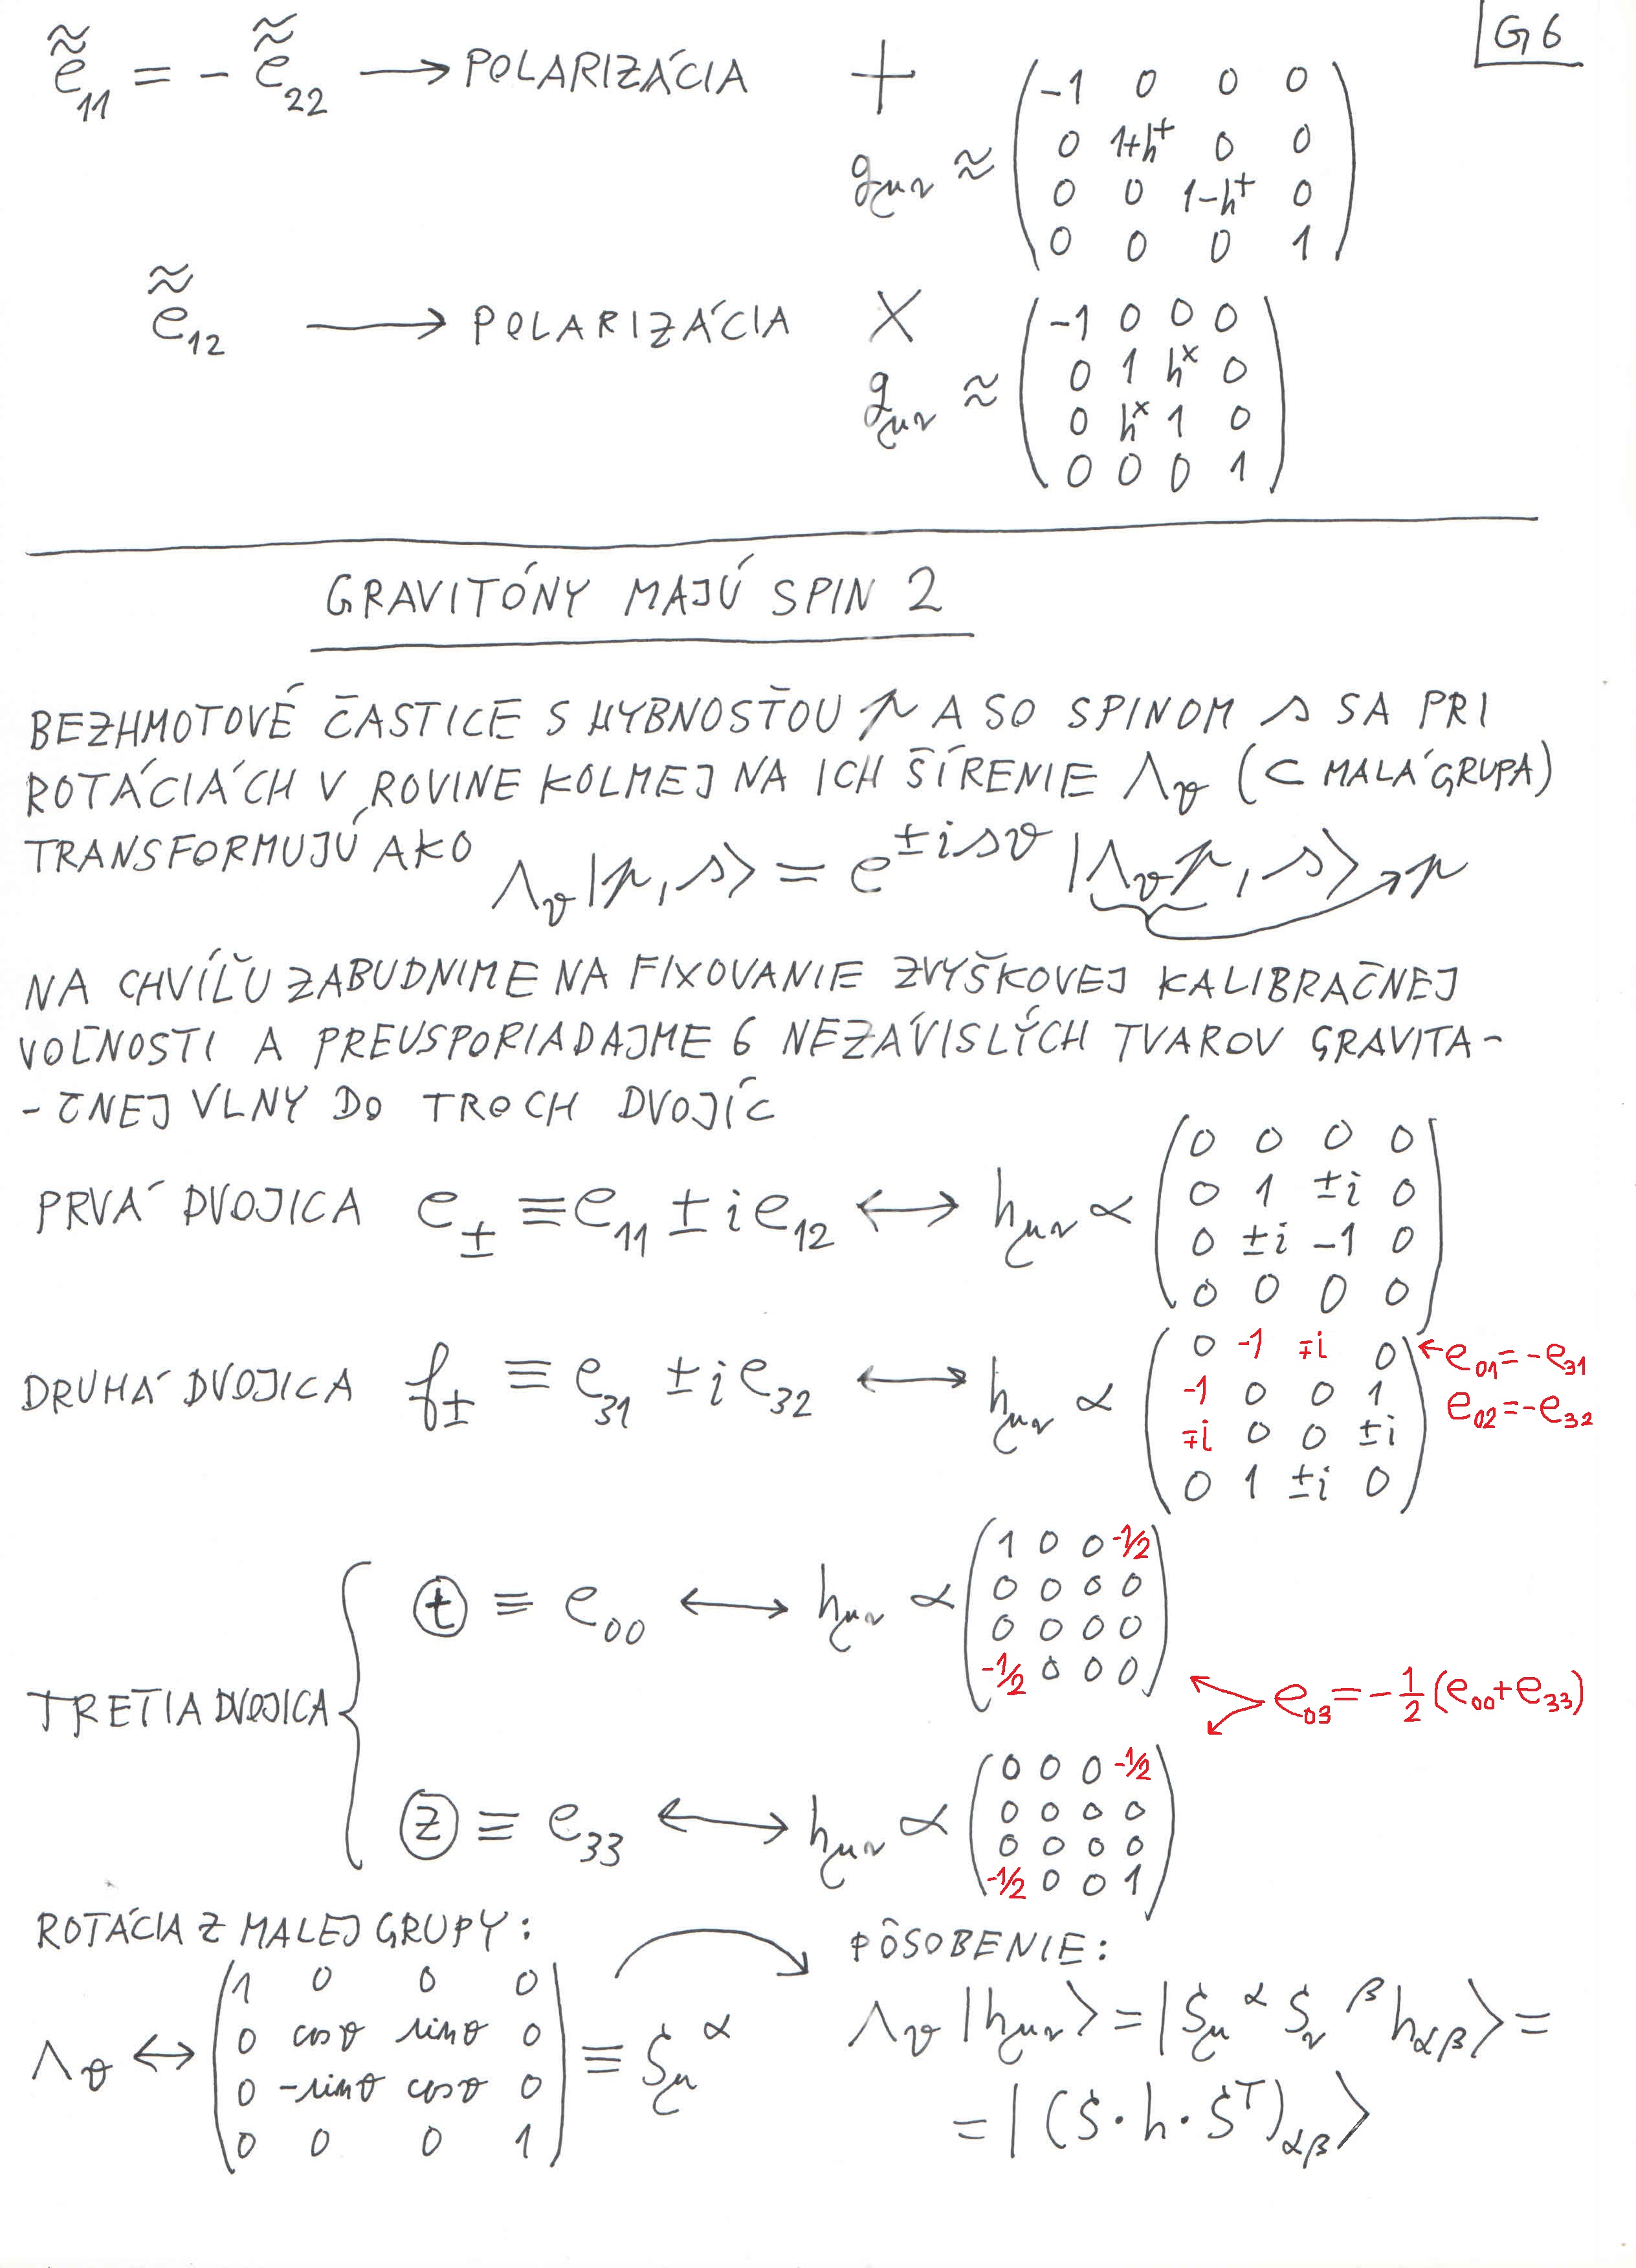 G6
≈e₁₁ = - ≈e₂₂ ⟶ POLARIZÁCIA +
g_μν ≈ ( -1 0 0 0
0 1+h⁺ 0 0
0 0 1-h⁺ 0
0 0 0 1 )
≈e₁₂ ⟶ POLARIZÁCIA ×
g_μν ≈ ( -1 0 0 0
0 1 hˣ 0
0 hˣ 1 0
0 0 0 1 )
GRAVITÓNY MAJÚ SPIN 2
BEZHMOTOVÉ ČASTICE S HYBNOSŤOU p A SO SPINOM s SA PRI
ROTÁCIÁCH V ROVINE KOLMEJ NA ICH ŠÍRENIE Λ_ϑ (⊂ MALÁ GRUPA)
TRANSFORMUJÚ AKO Λ_ϑ |p, s⟩ = e^{±isϑ} |Λ_ϑ p, s⟩ → p
NA CHVÍĽU ZABUDNIME NA FIXOVANIE ZVYŠKOVEJ KALIBRAČNEJ
VOĽNOSTI A PREUSPORIADAJME 6 NEZÁVISLÝCH TVAROV GRAVITA-
-ČNEJ VLNY DO TROCH DVOJÍC
PRVÁ DVOJICA e_± ≡ e₁₁ ± i e₁₂ ⟷ h_μν ∝ ( 0 0 0 0
0 1 ±i 0
0 ±i -1 0
0 0 0 0 )
DRUHÁ DVOJICA f_± ≡ e₃₁ ± i e₃₂ ⟷ h_μν ∝ ( 0 -1 ∓i 0
-1 0 0 1
∓i 0 0 ±i
0 1 ±i 0 )
← e₀₁ = -e₃₁
e₀₂ = -e₃₂
TRETIA DVOJICA {
ⓣ ≡ e₀₀ ⟷ h_μν ∝ ( 1 0 0 -1/2
0 0 0 0
0 0 0 0
-1/2 0 0 0 )
e₀₃ = - 1/2 (e₀₀ + e₃₃)
ⓩ ≡ e₃₃ ⟷ h_μν ∝ ( 0 0 0 -1/2
0 0 0 0
0 0 0 0
-1/2 0 0 1 )
ROTÁCIA Z MALEJ GRUPY:
Λ_ϑ ↔ ( 1 0 0 0
0 cosϑ sinϑ 0
0 -sinϑ cosϑ 0
0 0 0 1 ) ≡ S_μ^α
PÔSOBENIE:
Λ_ϑ |h_μν⟩ = |S_μ^α S_ν^β h_αβ⟩ =
= |(S·h·Sᵀ)_αβ⟩